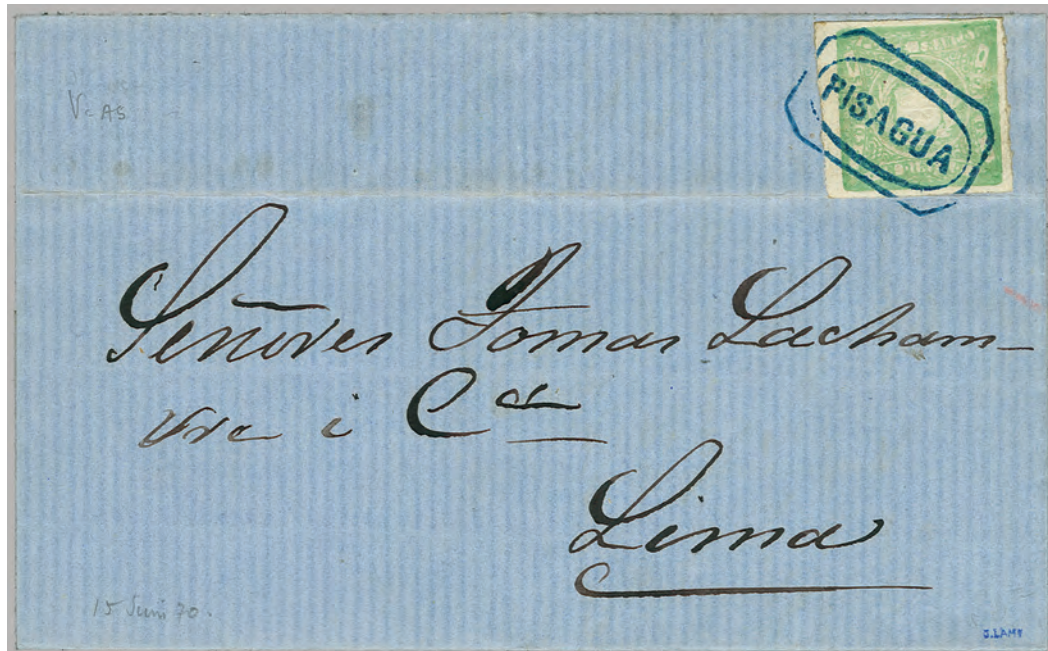 V= AS
PISAGUA
Señores Tomas Lacham-
vre i Cª
Lima
15 Juni 70.
J. LAMY